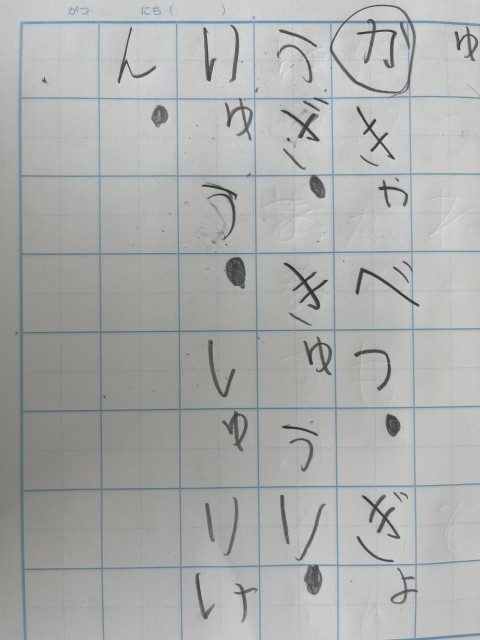 がつ にち( )
ゅ
か きゃべつ●ぎょ
うざ●きゅうり●
りゅう●しゅりけ
ん●